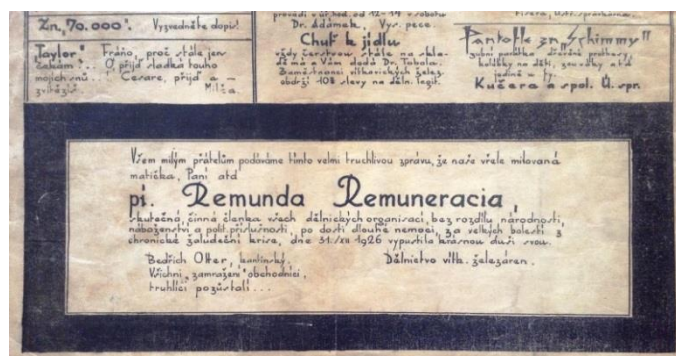 Zn. „70.000“. Vyzvedněte dopis!
„Taylor“. Fráňo, proč stále jen
čekám?.. Ó, přijď sladká touho
mojich snů. „Cesare, přijď a –
zvítězíš. Milča.
provádí v úř. hod. od 12–14 v sobotu
Dr. Adámek, Vys. pece.
Chuť k jídlu
vždy čerstvou stále na skla-
dě má a Vám dodá Dr. Tobola.
Zaměstnanci vítkovických želez.
obdrží 10% slevy na děln. legit.
Pantofle zn. „Schimmy“
zubní
kolébky na děti,
jedině u fy.
Kučera a spol. Ú. spr.
Všem milým přátelům podáváme tímto velmi truchlivou zprávu, že naše vřele milovaná
matička, Paní atd
pí. Remunda Remuneracia,
skutečná, činná členka všech dělnických organisací, bez rozdílu národnosti,
náboženství a polit. příslušnosti, po dosti dlouhé nemoci, za velkých bolestí z
chronické žaludeční krise, dne 31./XII 1926 vypustila krásnou duši svou.
Bedřich Olter, kantinský. Dělnictvo vítk. železáren.
Všichni „zamražení“ obchodníci,
truhlící pozůstalí...